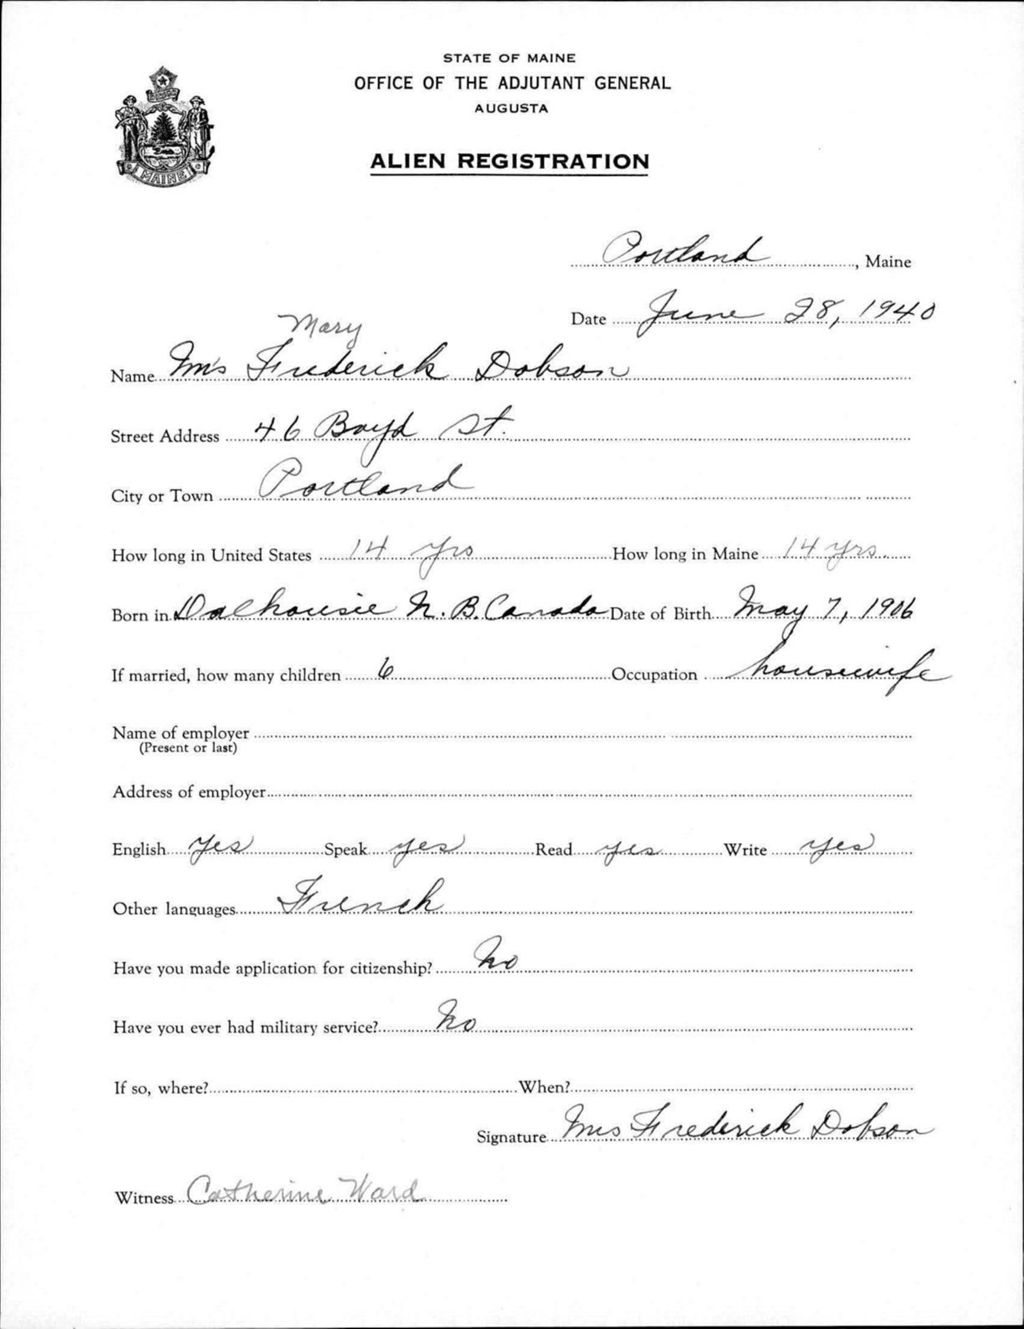 STATE OF MAINE
OFFICE OF THE ADJUTANT GENERAL
AUGUSTA
MAINE
ALIEN REGISTRATION
Portland, Maine
Date June 28, 1940
Mary
Name Mrs Frederick Dobson
Street Address 46 Boyd St.
City or Town Portland
How long in United States 14 yrs How long in Maine 14 yrs
Born in Dalhousie N.B. Canada Date of Birth May 7, 1906
If married, how many children 6 Occupation housewife
Name of employer
(Present or last)
Address of employer
English Yes Speak yes Read yes Write yes
Other languages French
Have you made application for citizenship? No
Have you ever had military service? No
If so, where? When?
Signature Mrs Frederick Dobson
Witness Catherine Ward